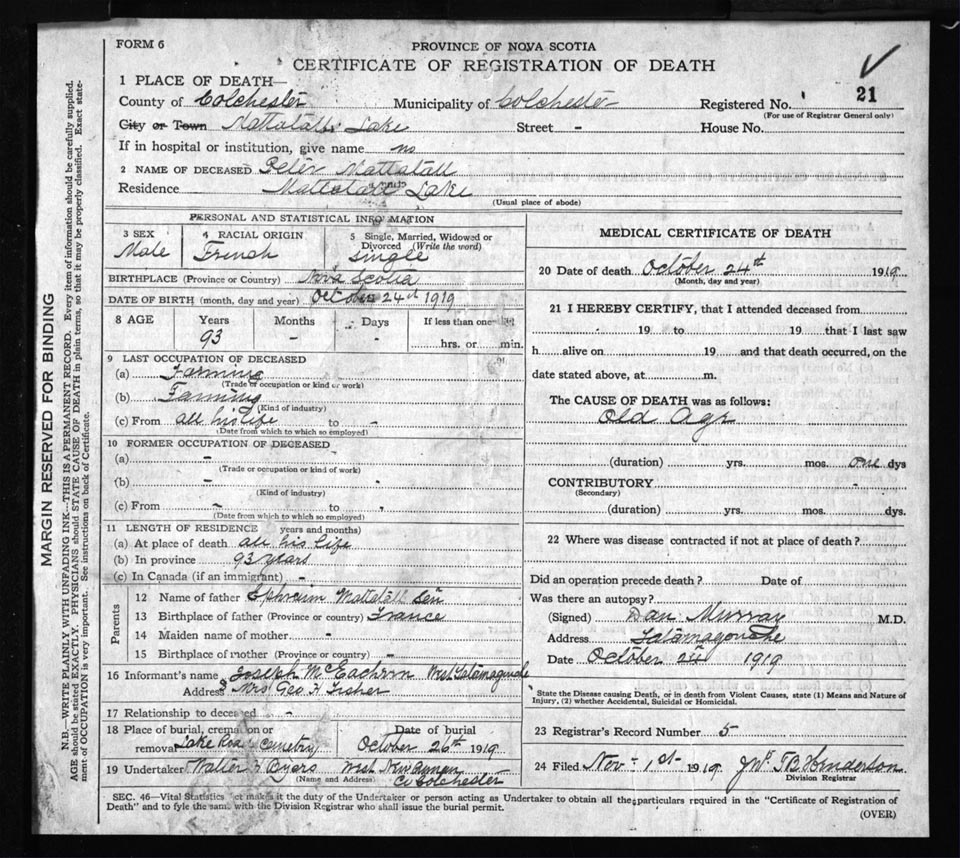 FORM 6
PROVINCE OF NOVA SCOTIA
CERTIFICATE OF REGISTRATION OF DEATH
1 PLACE OF DEATH—
County of Colchester Municipality of Colchester Registered No. 21
(For use of Registrar General only)
City or Town Mattatalls Lake Street - House No.
If in hospital or institution, give name no
2 NAME OF DECEASED Peter Mattatall
Residence Mattatall Lake
(Usual place of abode)
PERSONAL AND STATISTICAL INFORMATION
3 SEX Male
4 RACIAL ORIGIN French
5 Single, Married, Widowed or Divorced (Write the word) single
BIRTHPLACE (Province or Country) Nova Scotia
DATE OF BIRTH (month, day and year) October 24th 1919
8 AGE Years 93 Months - Days - If less than one day
hrs. or min.
9 LAST OCCUPATION OF DECEASED
(a) Farming
(Trade or occupation or kind or work)
(b) Farming
(Kind of industry)
(c) From all his life to -
(Date from which to which so employed)
10 FORMER OCCUPATION OF DECEASED
(a) -
(Trade or occupation or kind of work)
(b) -
(Kind of industry)
(c) From - to -
(Date from which to which so employed)
11 LENGTH OF RESIDENCE years and months)
(a) At place of death all his life
(b) In province 93 years
(c) In Canada (if an immigrant) -
Parents
12 Name of father Ephraim Mattatall Sen
13 Birthplace of father (Province or country) France
14 Maiden name of mother -
15 Birthplace of mother (Province or country) -
16 Informant's name Joseph McEachern West Tatamagouche
Address Mrs Geo. H Fisher
17 Relationship to deceased -
18 Place of burial, cremation or removal Lake Road Cemetry
Date of burial October 26th 1919
19 Undertaker Walter Byers West New Annan
(Name and Address) Co Colchester
MEDICAL CERTIFICATE OF DEATH
20 Date of death October 24th 1919
(Month, day and year)
21 I HEREBY CERTIFY, that I attended deceased from
19 to 19 that I last saw
h alive on 19 and that death occurred, on the
date stated above, at m.
The CAUSE OF DEATH was as follows:
Old Age
(duration) yrs. mos. one dys
CONTRIBUTORY -
(Secondary)
(duration) yrs. mos. dys.
22 Where was disease contracted if not at place of death?
Did an operation precede death? Date of
Was there an autopsy?
(Signed) Dan Murray M.D.
Address Tatamagouche
Date October 24th 1919
State the Disease causing Death, or in death from Violent Causes, state (1) Means and Nature of
Injury, (2) whether Accidental, Suicidal or Homicidal.
23 Registrar's Record Number 5
24 Filed Nov- 1st- 1919 Henderson
Division Registrar
SEC. 46—Vital Statistics Act makes it the duty of the Undertaker or person acting as Undertaker to obtain all the particulars required in the "Certificate of Registration of
Death" and to fyle the same with the Division Registrar who shall issue the burial permit.
(OVER)
MARGIN RESERVED FOR BINDING
N.B.—WRITE PLAINLY WITH UNFADING INK—THIS IS A PERMANENT RECORD. Every item of information should be carefully supplied.
AGE should be stated EXACTLY. PHYSICIANS should STATE CAUSE OF DEATH in plain terms, so that it may be properly classified. Exact state-
ment of OCCUPATION is very important. See instructions on back of Certificate.